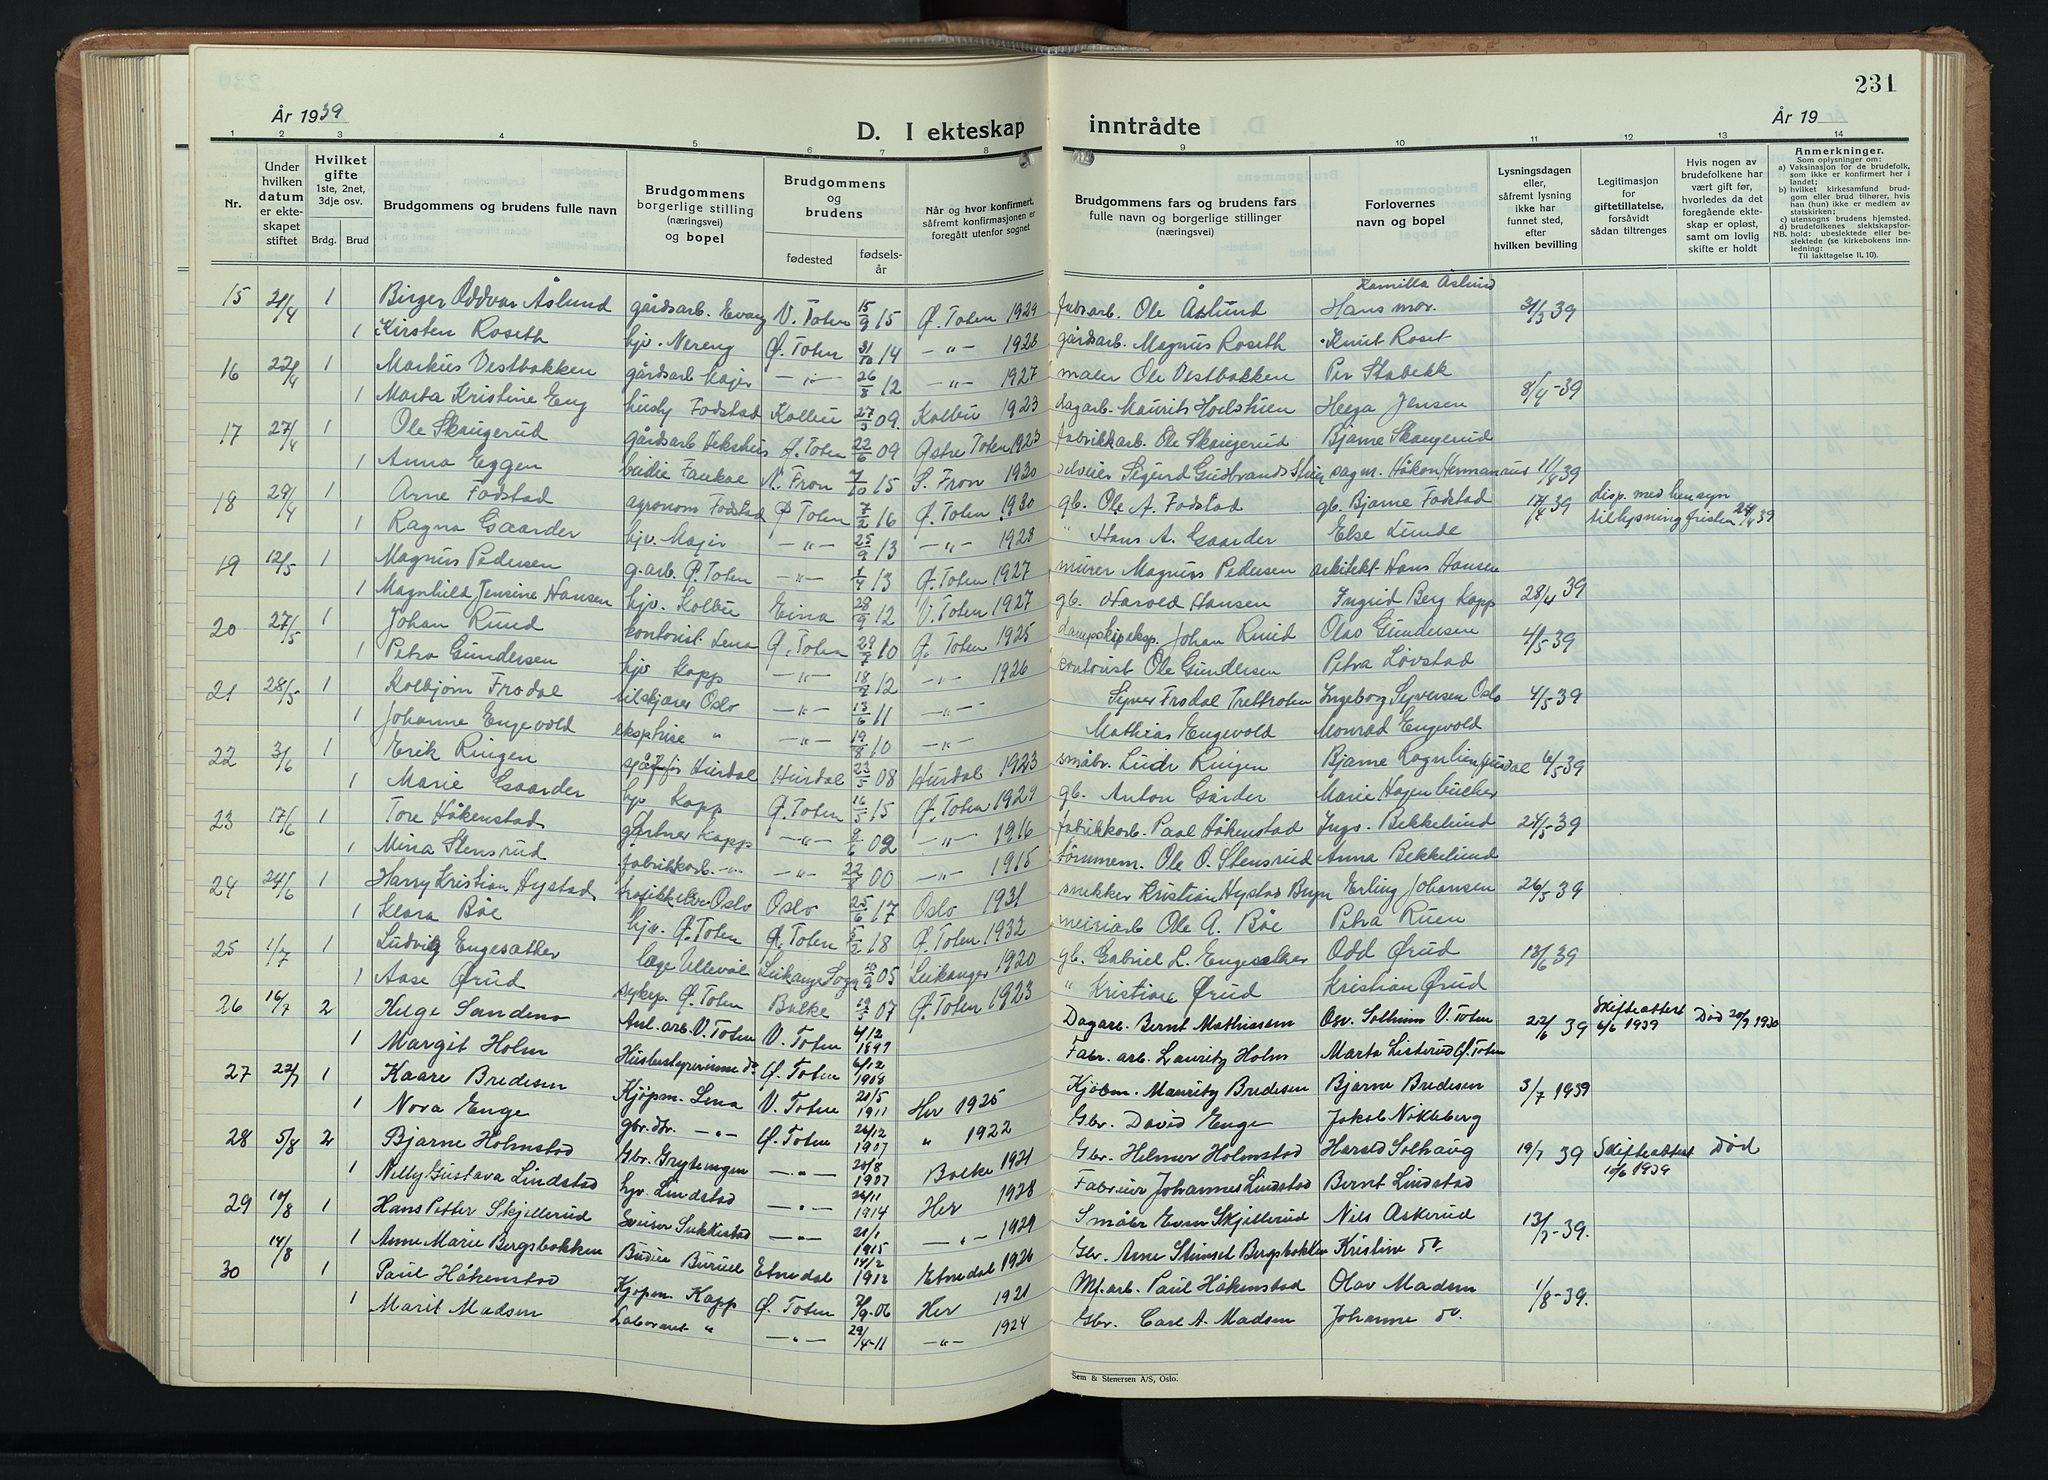 231
År 1939
D. I ekteskap inntrådte
År 19
1 2 3 4 5 6 7 8 9 10 11 12 13 14
Nr.
Under hvilken datum er ekteskapet stiftet
Hvilket gifte 1ste, 2net, 3dje osv.
Brdg. Brud
Brudgommens og brudens fulle navn
Brudgommens borgerlige stilling (næringsvei) og bopel
Brudgommens og brudens
fødested
fødselsår
Når og hvor konfirmert, såfremt konfirmasjonen er foregått utenfor sognet
Brudgommens fars og brudens fars fulle navn og borgerlige stillinger (næringsvei)
Forlovernes navn og bopel
Lysningsdagen eller, såfremt lysning ikke har funnet sted, efter hvilken bevilling
Legitimasjon for giftetillatelse, forsåvidt sådan tiltrenges
Hvis nogen av brudefolkene har vært gift før, hvorledes da det foregående ekteskap er opløst, samt om lovlig skifte er holdt
Anmerkninger.
Som oplysninger om:
a) Vaksinasjon for de brudefolk, som ikke er konfirmert her i landet;
b) hvilket kirkesamfund brudgom eller brud tilhører, hvis han (hun) ikke er medlem av statskirken;
c) utensogns brudens hjemsted.
d) brudefolkenes slektskapsforhold: ubeslektede eller beslektede (se kirkebokens innledning:
NB.
Til iakttagelse II, 10).
15 21/4 1 Birger Oddvar Åslund gårdsarb. Evang V. Toten 15/9 15 Ø. Toten 1929 fabr.arb. Ole Åslund Kamilla Åslund Hans mor. 31/3 39
1 Kirsten Roseth hjv. Nereng Ø. Toten 31/10 14 —"— 1928 gårdsarb. Magnus Roseth Knut Roset
16 22/4 1 Markus Vestbakken gårdsarb —"— 26/8 12 —"— 1927 maler Ole Vestbakken Per Stabekk 8/4-39
1 Marta Kristine Eng Fodstad Kolbu 27/3 09. Kolbu 1923 dagarb. Maurits Helga Jensen
17 27/4 1 Ole Skaugerud gårdsarb Ø. Toten 22/6 09 Østre Toten 1923 fabrikkarb. Ole Skaugerud Bjarne Skaugerud
1 Anna Eggen budeie N. Fron 7/10 15 S. Fron 1930 Sigurd Gudbrand Håkon Hermanrud 39
18 29/4 1 Arne Fodstad agronom Fodstad Ø Toten 7/2 16 Ø. Toten 1930 gb. Ole A. Fodstad gb. Bjarne Fodstad 17/4 39 disp. med hensyn til lysningsfristen 24/4 39
1 Ragna Gaarder hjv. Majer —"— 25/9 13 —"— 1928 " Hans A. Gaarder Else Lunde
19 12/5 1 Magnus Pedersen g.arb. Ø. Toten —"— 1/4 13 Ø. Toten 1927 murer Magnus Pedersen arkitekt Hans Hansen
1 Magnhild Jensine Hansen hjv. Kolbu Eina 28/9 12 V. Toten 1927 gb. Harald Hansen Ingrid Berg Kapp 28/4 39
20 27/5 1 Johan Ruud kontorist Lena Ø. Toten 29/7 10 Ø. Toten 1925 dampskipeksp. Johan Ruud Olav Gundersen 4/5-39
1 Petra Gundersen hjv Kapp —"— 18/9 12 —"— 1926 kontorist Ole Gundersen Petra Løvstad
21 28/5 1 Kolbjørn Frodal tilskjærer Oslo —"— 13/6 11 —"— Syver Frodal Trettroten Ingeborg Syversen Oslo 4/5-39
1 Johanne Engevold eksptrise " —"— 19/8 10 —"— Mathias Engevold Monrad Engevold
22 3/6 1 Erik Ringen sjåfør Hurdal Hurdal 23/5 08 Hurdal 1923 småbr. Ringen Bjarne Ragnhien Hurdal 6/5 39
1 Marie Gaarder hjv Kapp Ø. Toten 16/5 15 Ø. Toten 1929 gb. Anton Gårder Marie Hagenbücher
23 17/6 1 Tore Håkenstad gartner Kapp —"— 8/6 02 —"— 1916 fabrikkarb. Paal Håkenstad Inga Bekkelund 27/5-39
1 Mina Stensrud fabrikkarb. —"— —"— 22/8 00 —"— 1915 tømmerm. Ole O. Stensrud Anna Bekkelund
24 24/6 1 Harry Kristian Hystad trafikkelev Oslo Oslo 25/6 17 Oslo 1931 snekker Kristian Hystad Bryn Erling Johansen 26/5 39
1 Klara Bøe hjv. Ø. Toten Ø. Toten 5/2 18 Ø. Toten 1932 meieriarb Ole A. Bøe Petra Ruen
25 1/7 1 Ludvig Engesæther læge Ullevål Leikanger Sogn 05 Leikanger 1920 gb. Gabriel L. Engesæther Odd Ørud 13/6 39
1 Aase Ørud sykepl. Ø. Toten Balke 19/5 07 Ø. Toten 1923 " Kristian Ørud Kristian Ørud
26 16/7 2 Helge Sandeno Anl. arb. V. Toten V. Toten 4/12 1897 Dagarb. Bernt Mathiassen Osv. Solhium V. Toten 22/6 39 Skifteattest 6/6 1939 Død 20/9 1930
1 Margit Holm Husbestyrerinne do Ø. Toten 6/12 1908 Fabr. arb. Lauritz Holm Marta Listerud Ø. Toten
27 22/7 1 Kaare Bredesen Kjøpm. Lena V. Toten 21/5 1911 Her 1925 Kjøbm. Mauritz Bredesen Bjarne Bredesen 3/7 1939
1 Nora Enge gbr. dtr. —"— Ø. Toten 26/12 1907 " 1922 Gbr. David Enge Jakob Nøkleberg
28 5/8 2 Bjarne Holmstad Gbr. Grytingen —"— 20/8 1907 Balke 1921 Gbr. Helmer Holmstad Harald Solhaug 19/7 39 Skifteattest 10/6 1939 Død
1 Nelly Gustava Lindstad hjv. Lindstad —"— 26/11 1914 Her 1928 Fabreier Johannes Lindstad Bernt Lindstad
29 10/8 1 Hans Petter Skjellerud Sveiser Sukkestad —"— 21/1 1915 —"— 1929 Småbr Even Skjellerud Nils Askerud 13/7-39.
14/8 1 Anne Marie Bergsbakken Budeie Burud Etnedal 14/2 1912 Etnedal 1926 Gbr. Arne Stenset Bergsbakken Kristine do.
30 1 Paul Håkenstad Kjøpm. Kapp Ø. Toten 7/9-06 Her 1921 Mf.arb. Paul Håkenstad Olav Madsen 1/8-39.
1 Marit Madsen Laborant " —"— 29/4-11 —"— 1924 Gbr. Carl A. Madsen Johanne do.
Sem & Stenersen A/S, Oslo.